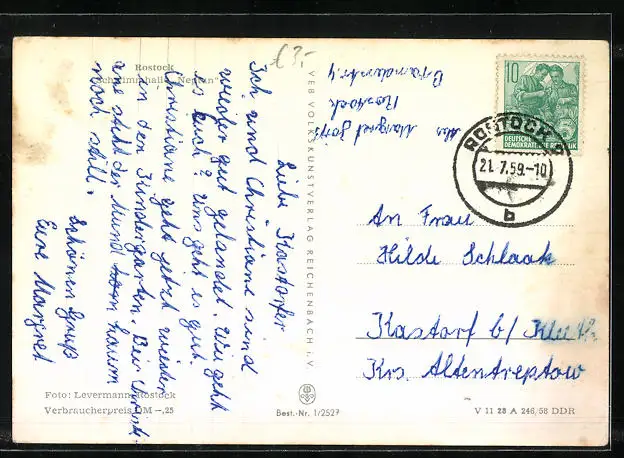 Rostock
Schwimmhalle „Neptun"
€ 3,-
Liebe Kastorfer
Ich und Christiane sind
wieder gut gelandet. Wie geht
es Euch? Uns geht es gut.
Christiane geht jetzt wieder
in den Kindergarten. Bei
uns steht der Mund kaum
noch still.
Schönen Gruß
Eure Margret
Foto: Levermann, Rostock
Verbraucherpreis DM –,25
VEB VOLKSKUNSTVERLAG REICHENBACH i. V.
Best.-Nr. 1/2527
Abs. Margret
Rostock
10
DEUTSCHE
DEMOKRATISCHE REPUBLIK
ROSTOCK
21. 7. 59.-10
b
An Frau
Hilde Schlaak
Kastorf b/
Krs. Altentreptow
V 11 28 A 246/58 DDR